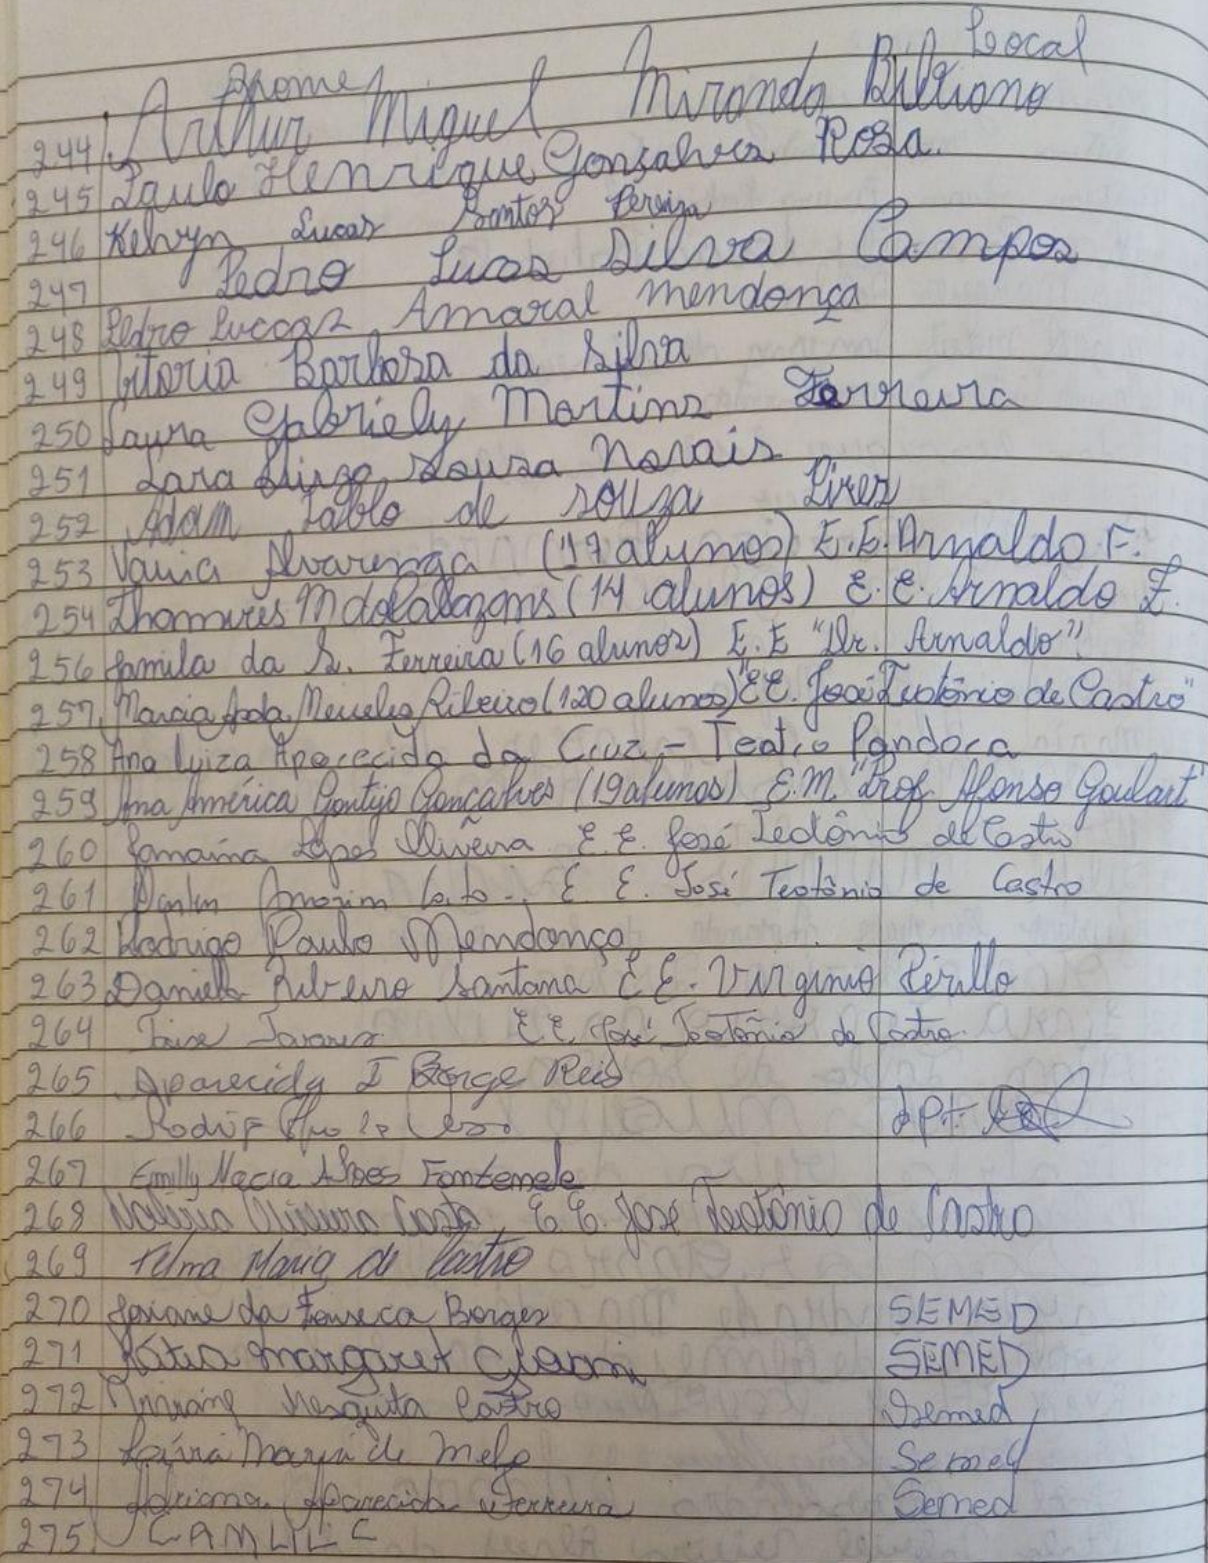 Nome Local
244 Arthur Miguel Miranda Biliano
245 Paulo Henrique Gonçalves Rosa
246 Kelvyn Lucas Santos Pereira
247 Pedro Lucas Silva Campos
248 Pedro Luccas Amaral mendonça
249 Vitoria Barbosa da Silva
250 Laura Gabriely Martins Ferreira
251 Lara Souza Morais
252 Adam Pablo de souza Pires
253 Vania Alvarenga (17 alunos) E.E. Arnaldo F.
254 (14 alunos) E.E. Arnaldo F.
256 Jamila da S. Ferreira (16 alunos) E.E "Dr. Arnaldo"
257 Marcia Meireles Ribeiro (120 alunos) "EE. José Teotônio de Castro"
258 Ana Luiza Aparecida da Cruz - Teatro Pandora
259 Ana América Gontijo Gonçalves (19 alunos) E.M. "Prof Afonso Goulart"
260 Janaína Lopes Oliveira E E. José Teotônio de Castro
261 Amorim E E. José Teotônio de Castro
262 Rodrigo Paulo Mendonça
263 Daniella Ribeiro Santana E E. Virginio Perillo
264 Tavares E E. José Teotônio de Castro
265 Aparecida I Borge Reis
266
267 Emilly Macia Alves Fontenele
268 Valeria Oliveira Costa, E E. José Teotônio de Castro
269 Telma Maria de Castro
270 Josiane da Fonseca Borges SEMED
271 Kátia margaret SEMED
272 Mesquita Castro Semed
273 Maria de Melo Semed
274 Adriana Aparecida Ferreira Semed
275